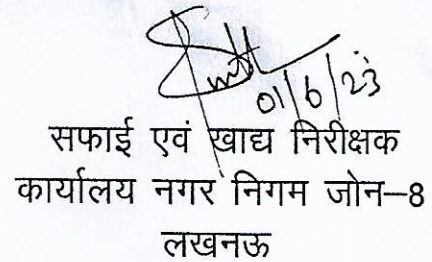 01/6/23
सफाई एवं खाद्य निरीक्षक
कार्यालय नगर निगम जोन–8
लखनऊ